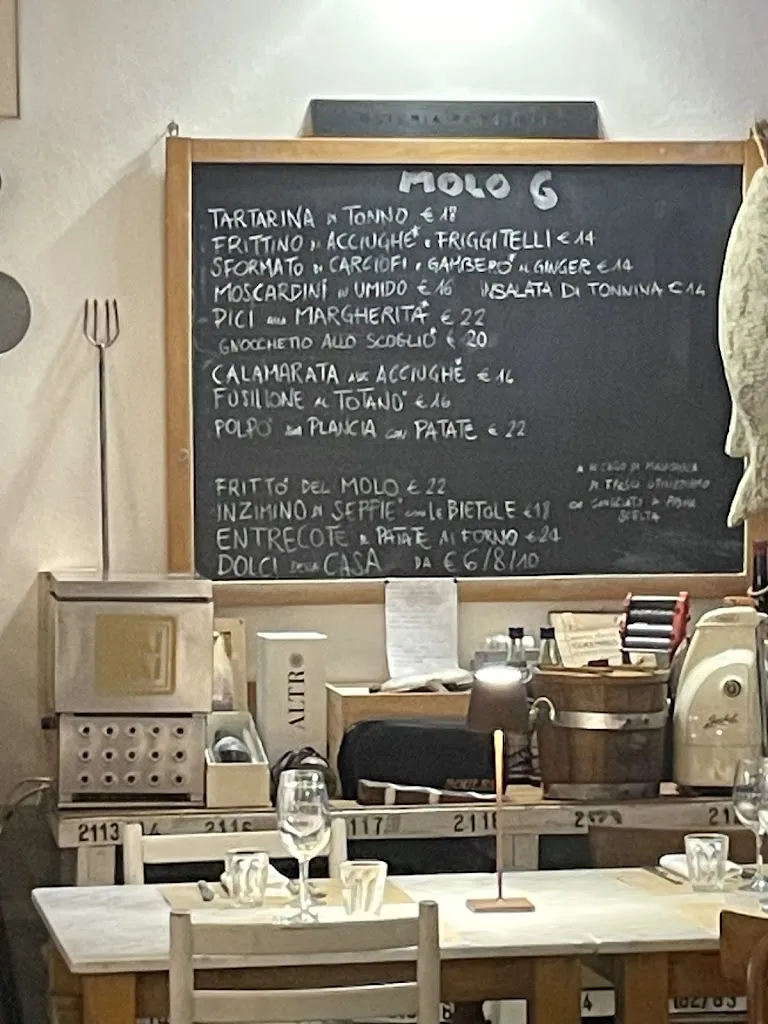 MOLO G
TARTARINA DI TONNO € 18
FRITTINO DI ACCIUGHE* E FRIGGITELLI € 14
SFORMATO DI CARCIOFI E GAMBERO* AL GINGER € 14
MOSCARDINI* IN UMIDO € 16 INSALATA DI TONNINA € 14
PICI ALLA MARGHERITA* € 22
GNOCCHETTO ALLO SCOGLIO* € 20
CALAMARATA ALLE ACCIUGHE* € 16
FUSILLONE AL TOTANO* € 16
POLPO* ALLA PLANCIA CON PATATE € 22
FRITTO* DEL MOLO € 22
INZIMINO DI SEPPIE* CON LE BIETOLE € 18
ENTRECOTE E PATATE AL FORNO € 24
DOLCI DELLA CASA DA € 6/8/10
SCELTA
ALTRO
2113
2115
117
211
4
182/83